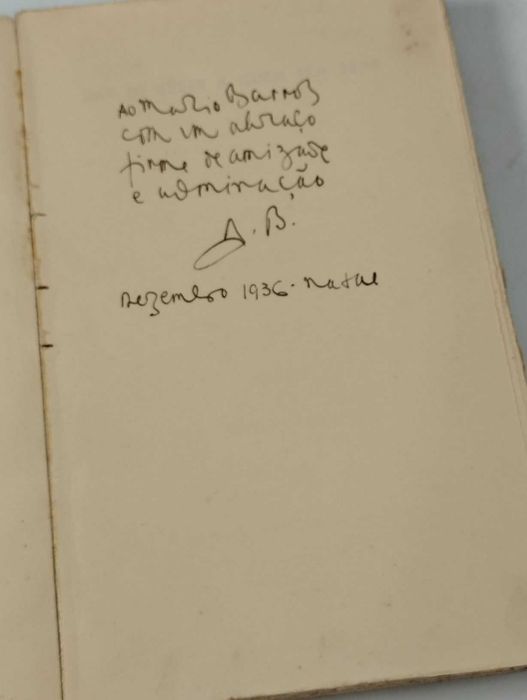 Ao Mario Barros
com um abraço
firme de amizade
e admiração
A. B.
Dezembro 1936. Natal